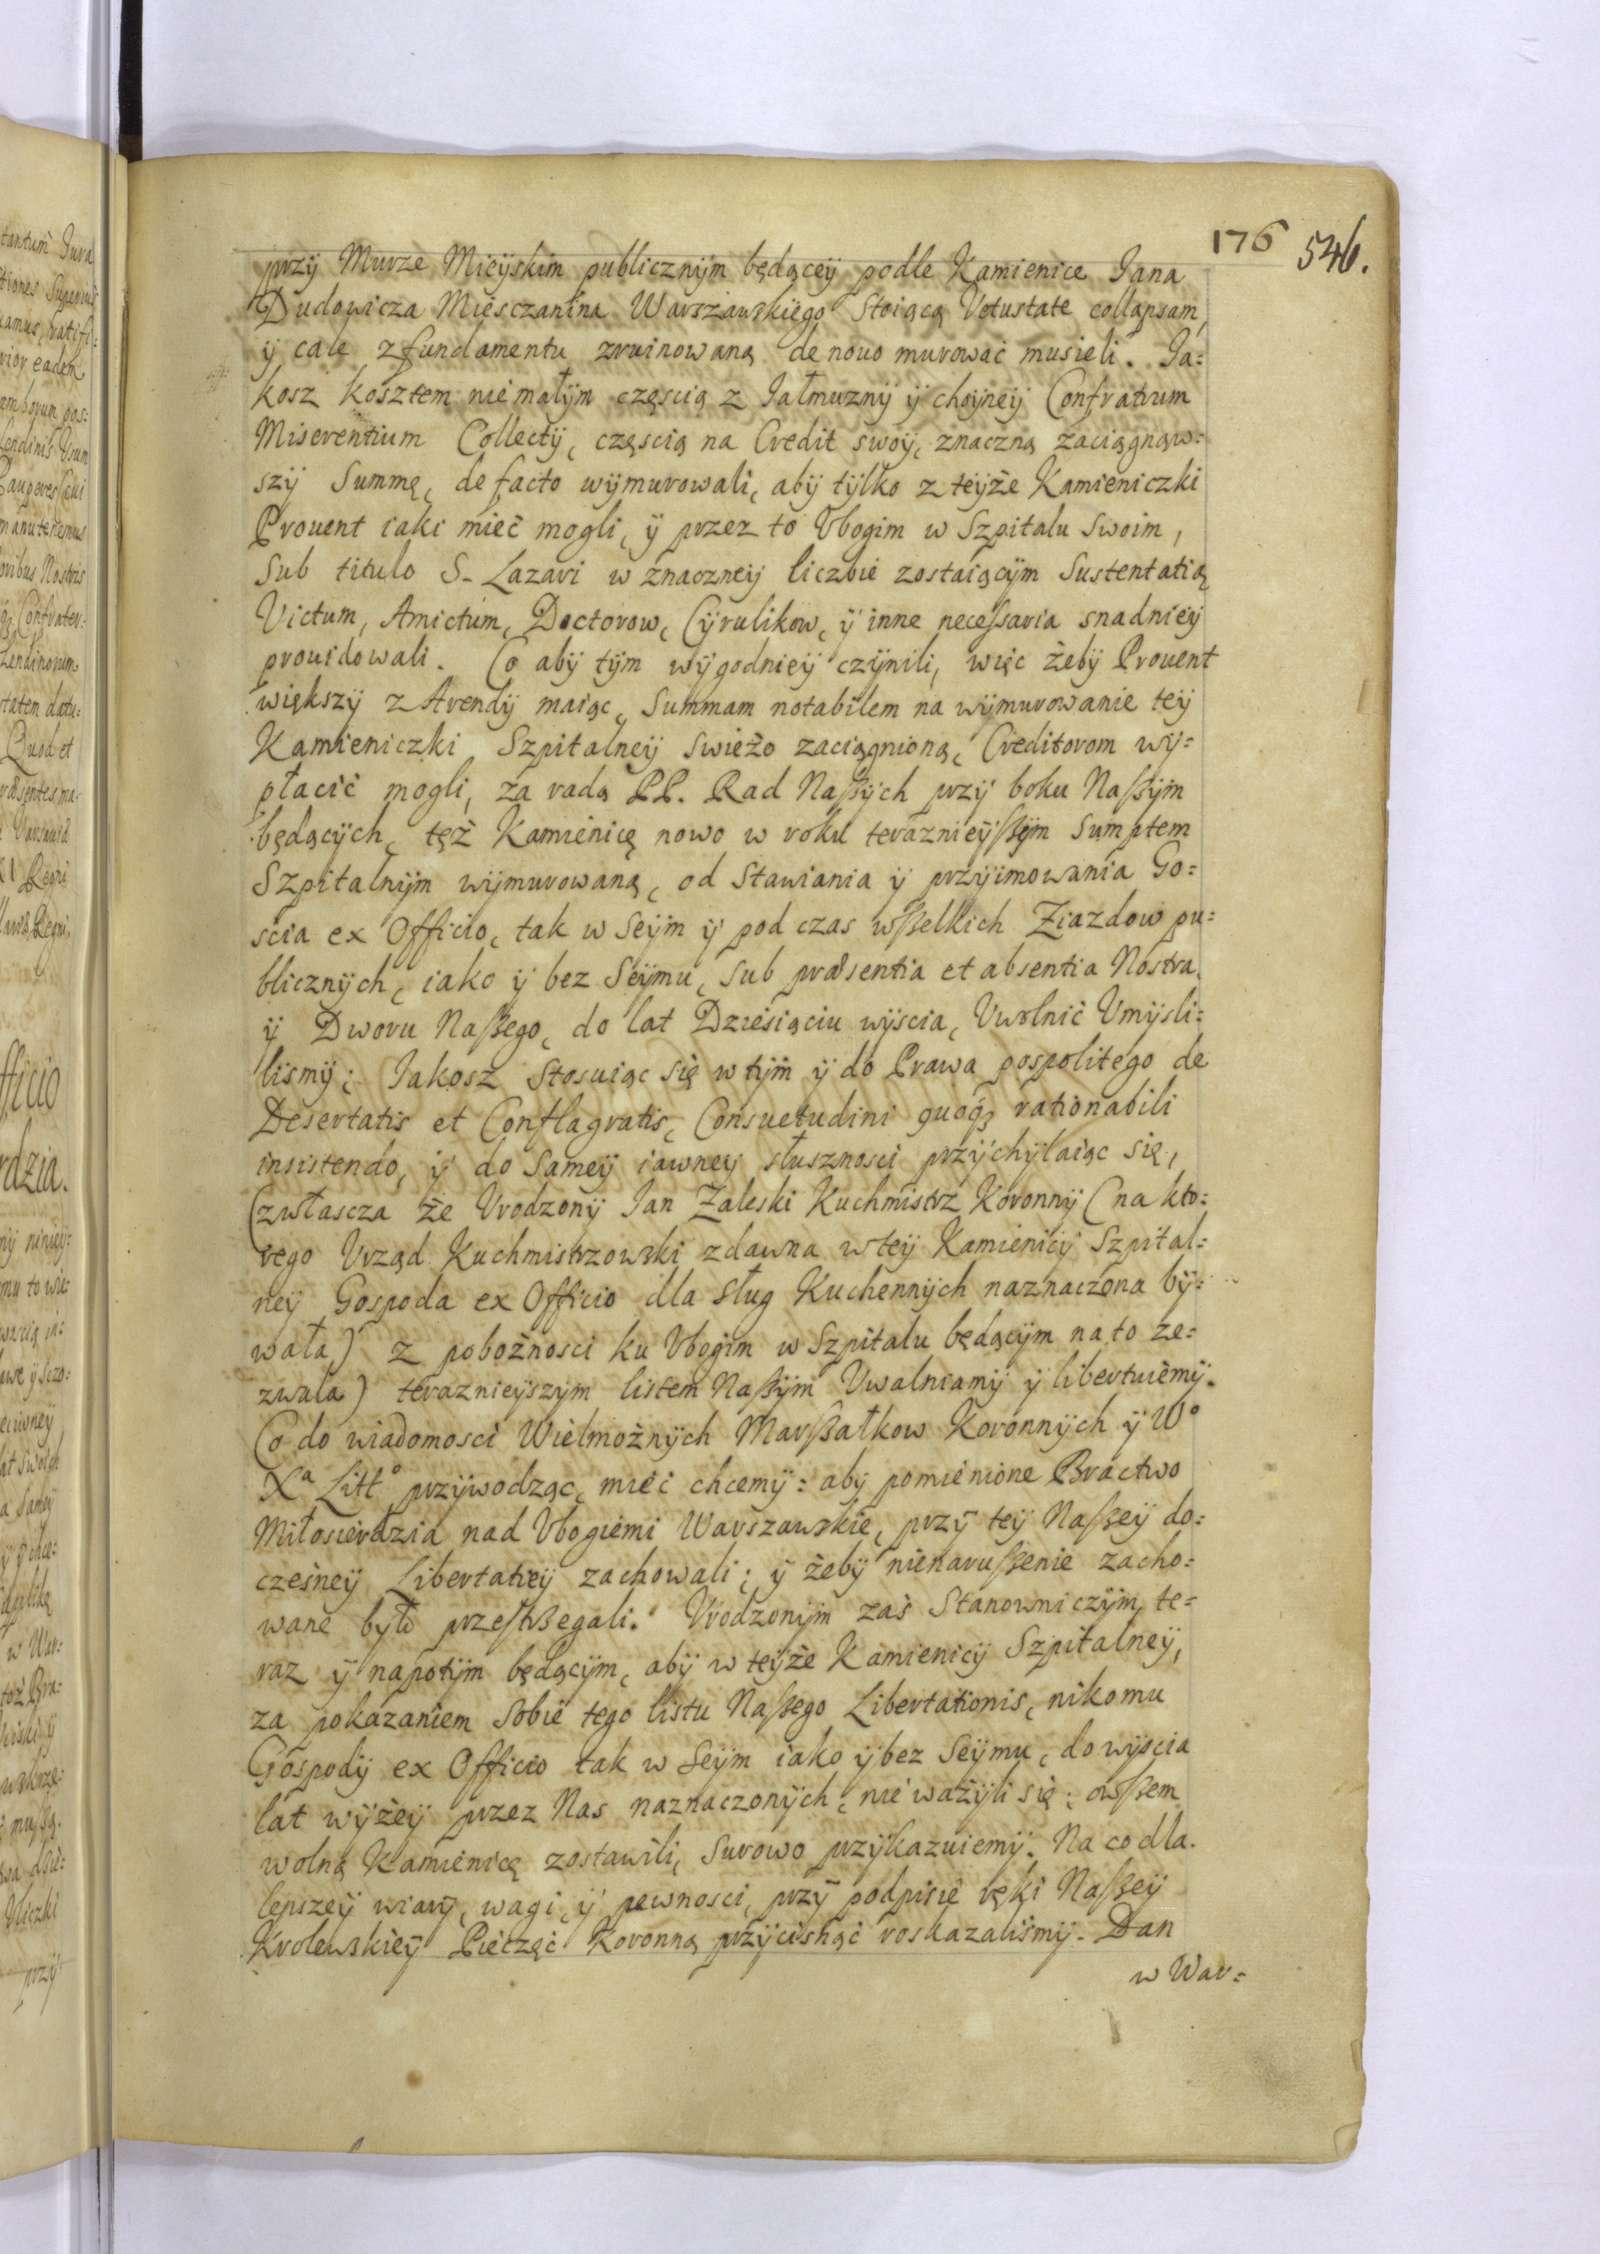 176 546.
przÿ Murze Mieÿskim publicznÿm będąceÿ podle Kamienice Jana
Dudowicza Miesczanina Warszawskiego stoiącą Vetustate collapsam,
ÿ cale z fundamentu zruinowaną de nouo murować musieli. Ja=
kosz kosztem niemałÿm częscią z Jałmuznÿ ÿ choÿneÿ Confratrum
Miserentium Collectÿ, częscią na Credit swoÿ, znaczną zaciągnąw=
szÿ Summę, de facto wÿmurowali, abÿ tÿlko z teÿże Kamieniczki
Prouent iaki mieć mogli, ÿ przez to Vbogim w Szpitalu swoim,
Sub titulo S. Lazari w znaczneÿ liczbie zostaiącÿm Sustentatią
Victum, Amictum, Doctorow, Cÿrulikow, ÿ inne neceſsaria snadnieÿ
prouidowali. Co abÿ tÿm wÿgodnieÿ czÿnili, więc żebÿ Prouent
większÿ z Arendÿ maiąc, Summam notabilem na wÿmurowanie teÿ
Kamieniczki Szpitalneÿ swieżo zaciągnioną, Creditorom wÿ=
płacić mogli, za radą PP. Rad Naſzÿch przÿ boku Naſzÿm
będącÿch, tęż Kamienicę nowo w roku teraznieÿſzÿm Sumptem
Szpitalnÿm wÿmurowaną, od Stawiania ÿ przÿimowania Go=
scia ex Officio, tak w Seÿm ÿ pod czas wſzelkich Ziazdow pu=
blicznÿch, iako ÿ bez Seÿmu, Sub præsentia et absentia Nostra
ÿ Dworu Naſzego, do lat Dziesiąciu wÿscia, Vwolnić Vmÿsli=
lismÿ; Jakosz Stosuiąc się w tÿm ÿ do Prawa pospolitego de
Desertatis et Conflagratis, Consuetudini quoqꝫ rationabili
insistendo, ÿ do Sameÿ iawneÿ słusznosci przÿchÿlaiąc się,
(zwłascza że Vrodzonÿ Jan Zaleski Kuchmistrz Koronnÿ (na kto=
rego Vrząd Kuchmistrzowski zdawna w teÿ Kamienicÿ Szpital=
neÿ Gospoda ex Officio dla sług Kuchennÿch naznaczona bÿ=
wała) z pobożnosci ku Vbogim w Szpitalu będącÿm na to ze=
zwala) teraznieÿszÿm listem Naſzÿm Vwalniamÿ ÿ libertuiemÿ.
Co do wiadomosci Wielmożnÿch Marſzałkow Koronnÿch ÿ Wº
Xª Littº przÿwodząc, mieć chcemÿ: abÿ pomienione Bractwo
Miłosierdzia nad Vbogiemi Warszawskie, przÿ teÿ Naſzeÿ do=
czesneÿ Libertatieÿ zachowali; ÿ żebÿ nienaruſzenie zacho=
wane bÿło przeſtrzegali. Vrodzonÿm zaś Stanowniczÿm te=
raz ÿ napotÿm będącÿm, abÿ w teÿże Kamienicÿ Szpitalneÿ,
za pokazaniem sobie tego listu Naſzego Libertationis, nikomu
Gospodÿ ex Officio tak w Seÿm iako ÿ bez Seÿmu, do wÿscia
lat wÿżeÿ przez Nas naznaczonÿch, nie ważÿli się; owſzem
wolną Kamienicę zostawili, surowo przÿkazuiemÿ. Na co dla
lepszeÿ wiarÿ, wagi, ÿ pewnosci, przÿ podpisie ręki Naſzeÿ
Krolewskieÿ Pieczęć Koronną przÿcisnąć roskazalismÿ. Dan
w War=